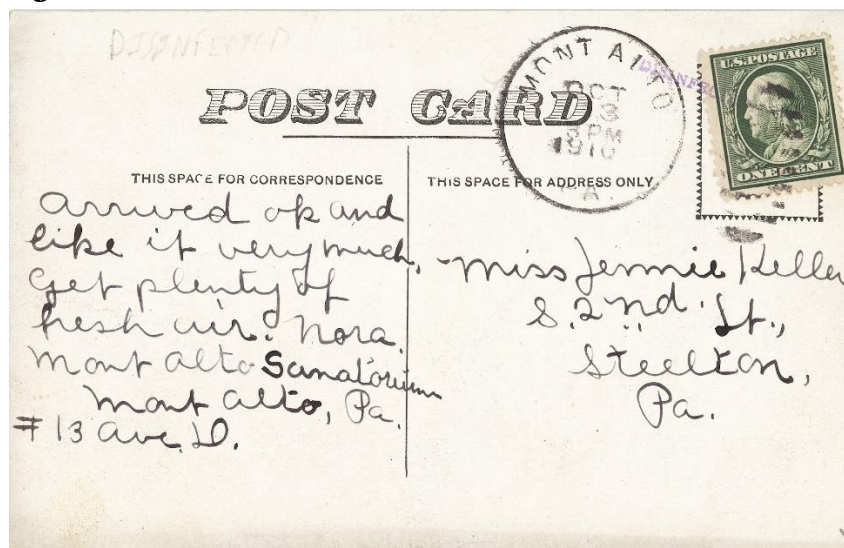 DISINFECTED
POST CARD
MONT ALTO
DISINFEC
OCT
3
3 PM
1910
A.
U.S. POSTAGE
ONE CENT
THIS SPACE FOR CORRESPONDENCE
Arrived ok and
like it very much,
Get plenty of
fresh air. Nora.
Mont Alto Sanatorium
Mont Alto, Pa.
#13 Ave. D.
THIS SPACE FOR ADDRESS ONLY
Miss Jennie Keller
S. 2nd. St.,
Steelton,
Pa.